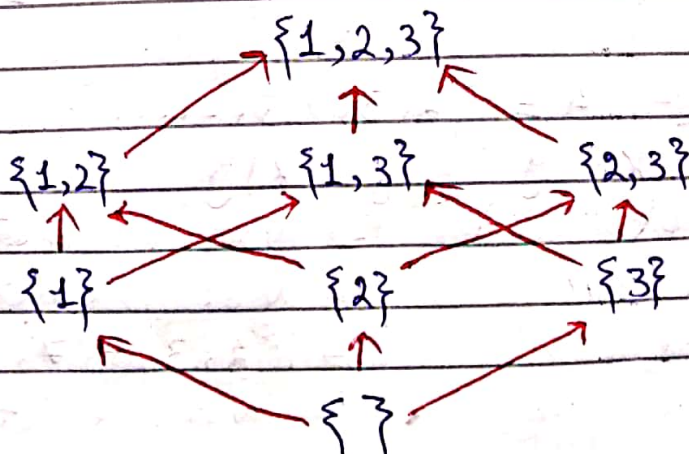 {1,2,3}
{1,2} {1,3} {2,3}
{1} {2} {3}
{ }